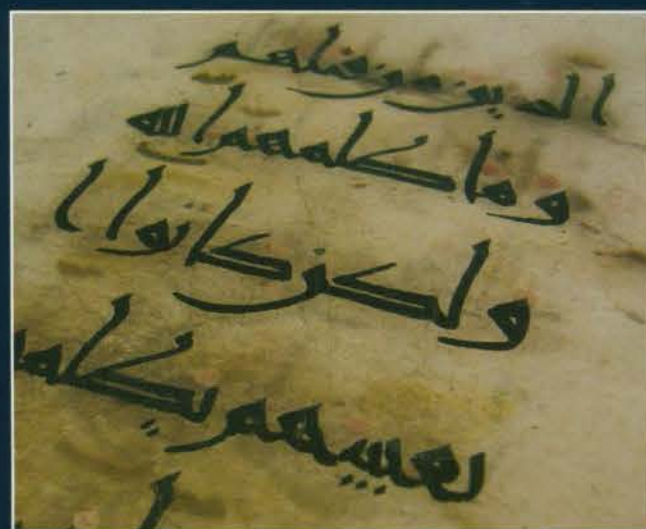 الذين من قبلهم
وما ظلمهم الله
ولكن كانوا ا
نفسهم يظلمو